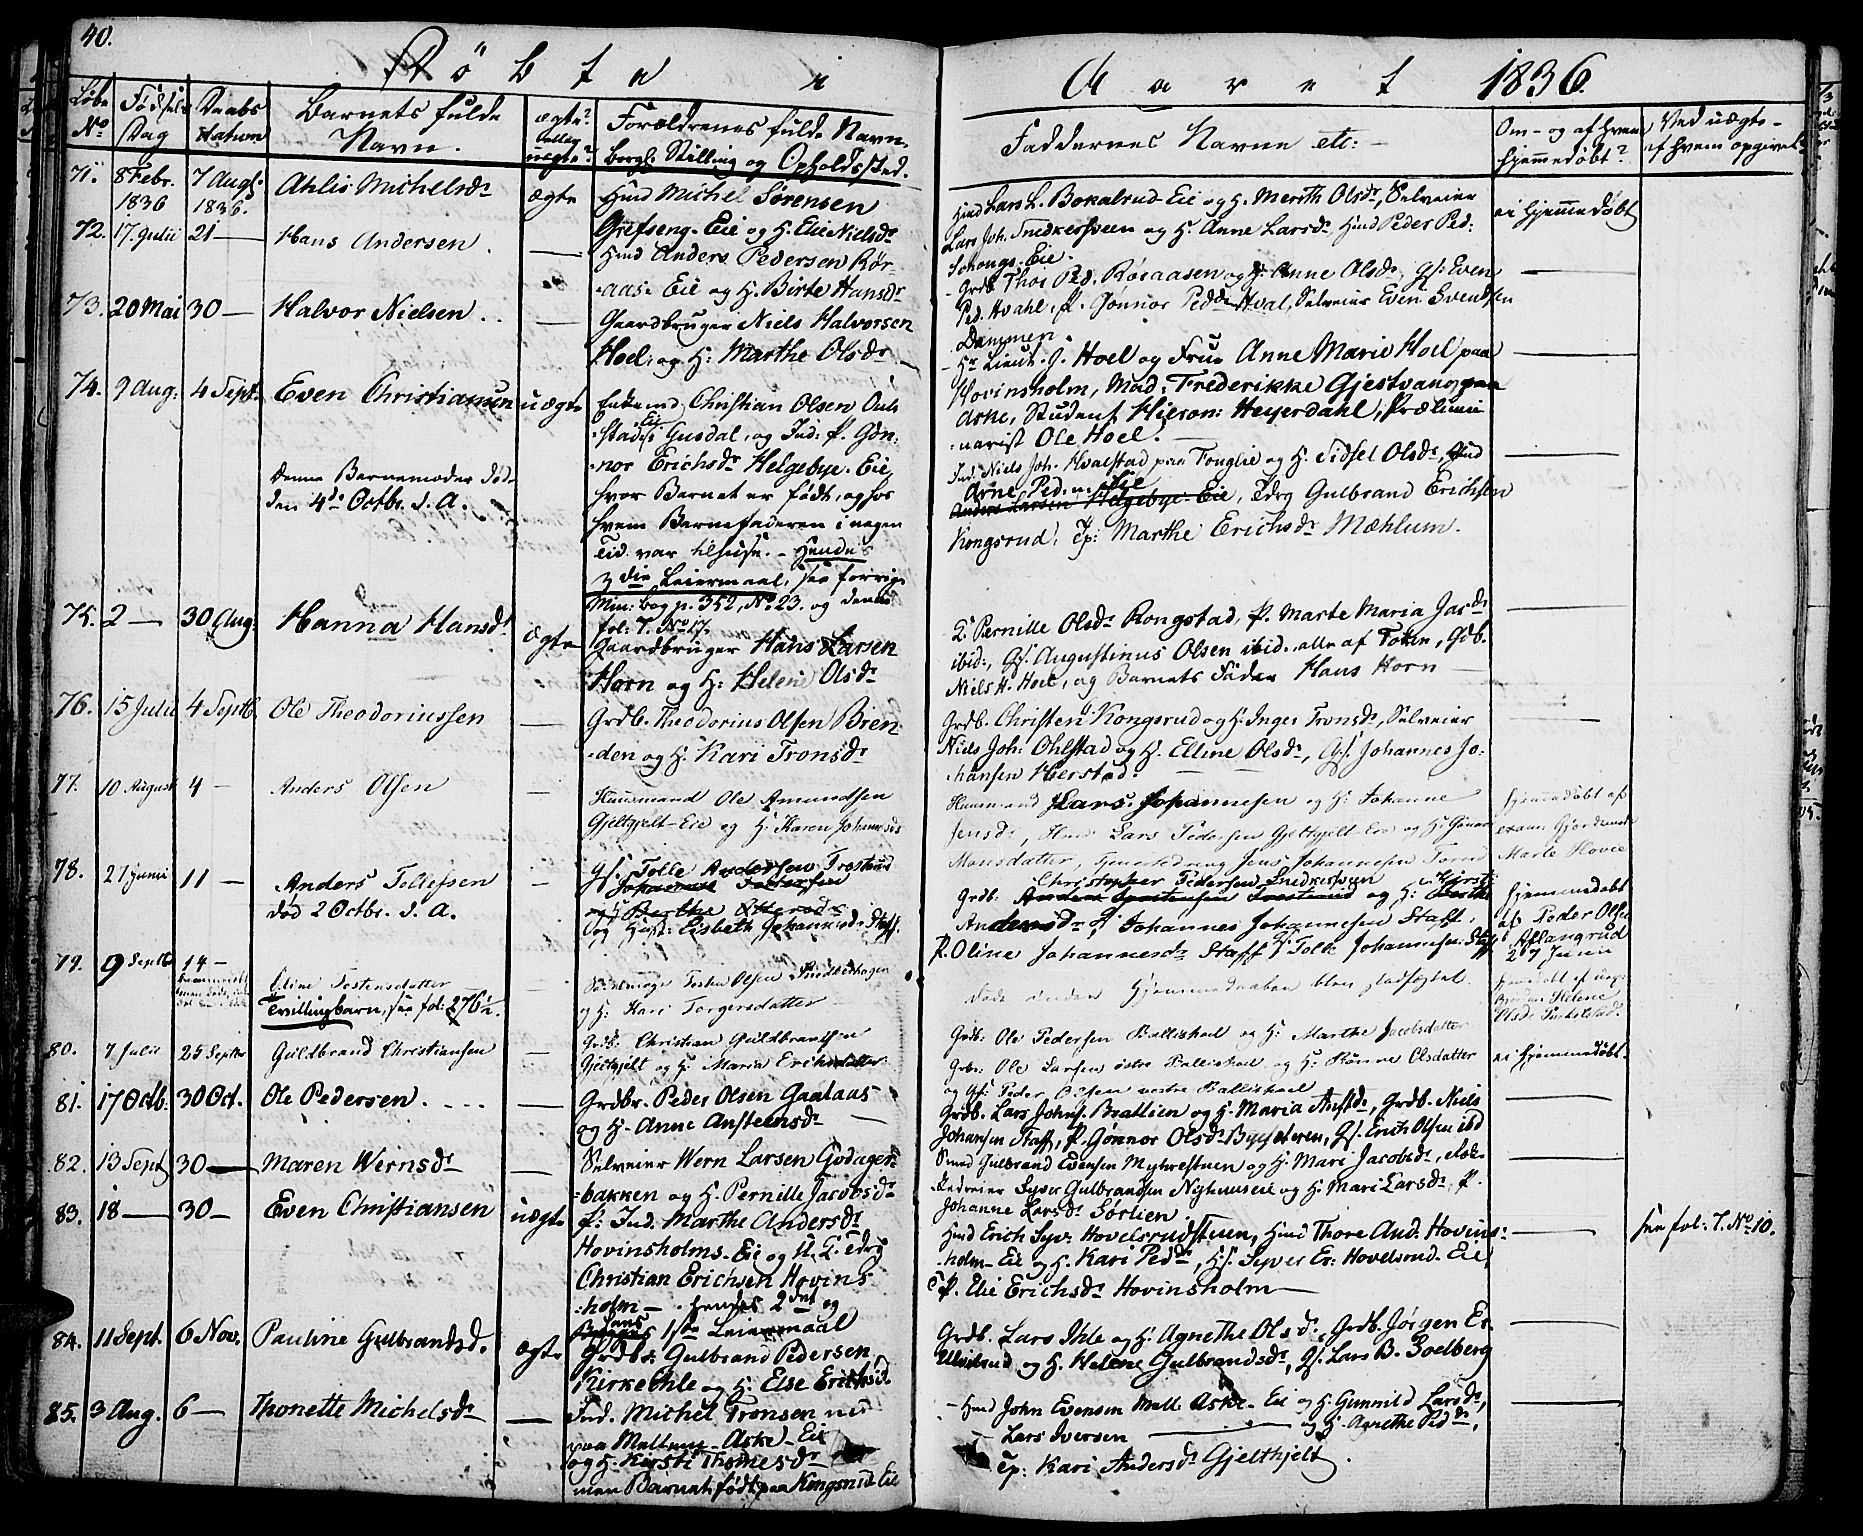 40.
Døbte i Aaret 1836.
Løbe No
Fødsels Dag
Daabs Datum
Barnets fulde Navn.
ægte? eller uægte?
Forældrenes fulde Navn, borgl: Stilling og Opholdssted.
Faddernes Navne etc: -
Om - og af hvem hjemmedøbt?
Ved uægte - af hvem opgivet
71. 8 Febr. 1836 7 Augt. 1836. Ahlis Michelsdr ægte
Huusd Michel Sørensen
Grefseng-Eie og H. Elie Nielsdr
Huusd Lars L. Bekalrud-Eie og H. Merith Olsdr, Selveier
Lars Joh. Snedkersveen og H. Anne Larsdr Huusd Peder Ped:
Schongs-Eie.
ei hjemmedøbt
72. 17. Julii 21 — Hans Andersen. —
Huusd Anders Pedersen Rør-
aas-Eie og H. Birte Hansdr
Grdb. Thor Ped. Røsaasen og H. Anne Olsdr, Gf. Even
Ped. Hvahl, P. Gønnor Pedd. Hval, Selveier Even Svendsen
Dammen.
—
73. 20 Mai 30 — Halvor Nielsen. . —
Gaardbruger Niels Halvorsen
Hoel, og H: Marthe Olsdr
Hr Lieut. J. Hoel og Frue Anne Marie Hoel paa
Hovinsholm, Mad: Frederikke Gjestvang paa
Aske, Student Hieron: Heyerdahl, Prælimi-
narist Ole Hoel.
—
74. 9 Aug: 4 Sept. Even Christiansen uægte
Enkemd Christian Olsen Ouls-
stad Eie i Gusdal, og Ind: P. Gøn-
nor Erichsdr Helgebye-Eie,
hvor Barnet er født, og hos
hvem Barnefaderen i nogen
Tid var tilhuse. - Hendes
3die Leiermaal, see forrige
Min: bog p. 352, No 23. og denne
fol: 7. No 17.
Denne Barnemoder død
den 4de Octbr. d. A.
Ind: Niels Joh. Hvalstad paa Fonglie og H. Sidsel Olsdr, Ind
Arne Ped. Eie
Anders Larsen Helgebye-Eie, Tdrg Gulbrand Erichsen
Kongsrud, Tp: Marthe Erichsdr Mæhlum.
—
75. 2 — 30 Aug: Hanna Hansdr ægte
Gaardbruger Hans Larsen
Horn og H: Helene Olsdr
E. Pernille Olsdr Rongstad, P. Marte Maria Jasdr
ibid:, Gf. Augustinus Olsen ibid. alle af Toten, Gdb.
Niels H. Hoel, og Barnets Fader Hans Horn
—
76. 15 Julii 4 Septb. Ole Theodoriussen —
Grdb. Theodorius Olsen Bren-
den og H. Kari Tronsdr
Grdb. Christen Kongsrud og H. Inger Tronsdr, Selveier
Niels Joh: Ohlstad og H. Elline Olsdr, Gf. Johannes Jo-
hansen Hierstad.
—
77. 10 August 4 - Anders Olsen —
Huusmand Ole Amundsen
Gjeltgjelt-Eie og H. Karen Johannesd
Huusmand Lars Johannesen og H. Johanne
Jensdr, Huusd Lars Pedersen Gjeltgjelt Eie og H. Gunnor
Monsdatter, Tjenestedreng Jens Johannesen
hjemmedøbt af
Marte Hovie
78. 27 Junii 11 — Anders Tollefsen
død 2 Octbr. d. A.
—
Gf. Tolle Andersen Trosterud
og Berthe
og Huust: Lisbeth Johannesd. Staff.
Christopher Pedersen Snedkersveen
Grdb: og H: Kirsti
Andersdr, Johannes Johannesen Staff.
P. Oline Johannesdr Staff, Gf. Tolle Johannesen Staff
hjemmedøbt
af Peder Olsen
Aslangrud
27 Junii
79. 9 Septb 14 —
Eline Tostensdatter
Tvillingbarn, see fol: 276½.
Tosten Olsen
og H: Kari Torgersdatter
Døde inden Hjemmedaaben blev stadfæstet.
hjemmedøbt af
Helene
80. 7 Julii 25 Septbr Guldbrand Christiansen —
Grdb. Christian Guldbrandsen
Gjeltgjelt og H: Maria Erichsdatter
Grdb: Ole Pedersen Ballishoel og H: Marthe Jacobsdatter
Grbr: Ole Larsen østre Ballishoel og H: Rønne Olsdatter
og Gf: Peder Olsen vestre Ballishoel
ei hjemmedøbt.
81. 17 Octb. 30 Oct. Ole Pedersen. . . . —
Grdbr. Peder Olsen Gaalaas
og H. Anne Anstensdr —
Grdb. Lars Johnf. Brattlien og H. Maria Anstdr, Grdb. Niels
Johansen Staff, P. Gønnor Olsdr Bysæteren, Gf. Erich Olsen ibd
—
82. 13 Sept 30 — Maren Wernsdr —
Selveier Wern Larsen Godager-
bakken og H. Pernille Jacobsdr
Smed Gulbrand Evensen Myhrestuen og H. Mari Jacobsdr,
Syver Gulbrandsen Nyhuuseie og H. Mari Larsdr, P.
Johanne Larsdr Sørlien
—
83. 18 — 30 — Even Christiansen uægte
P. Ind. Marthe Andersdr
Hovinsholms-Eie og U. K. Tdrg
Christian Erichsen Hovins-
holm — . hendes 2det og
hans 1ste Leiermaal
Huusd Erich Syv: Hovelsrudstuen, Huusd Thore And. Hovins-
holm-Eie og H. Kari Peddr, Gf. Syver Er: Hovelsrud. Eie,
P. Elie Erichsdr Hovinsholm —
—
see fol: 7. No 10.
84. 11 Sept. 6 Nov. Pauline Gulbrandsd. ægte
Grdbr Gulbrand Pedersen
Kirkeihle og H. Else Erichsd.
Grdb. Lars Ihle og H: Agnethe Olsdr, Grdb. Jørgen Er.
Ulvilrud og H. Helene Gulbrandsdr, Gf. Lars B. Bolberg
—
85. 3 Aug. 6 — Thonette Michelsdr —
Ind. Michel Tronsen
paa Meltun-Aske-Eie
og H. Kirsti Thomesdr
men Barnet født paa Kongsrud Eie
Huusd John Evensen Aske-Eie og H. Gunnild Larsdr,
- Lars Iversen — og H. Agnethe Peddr,
Tp: Kari Andersdr Gjelthjelt.
—